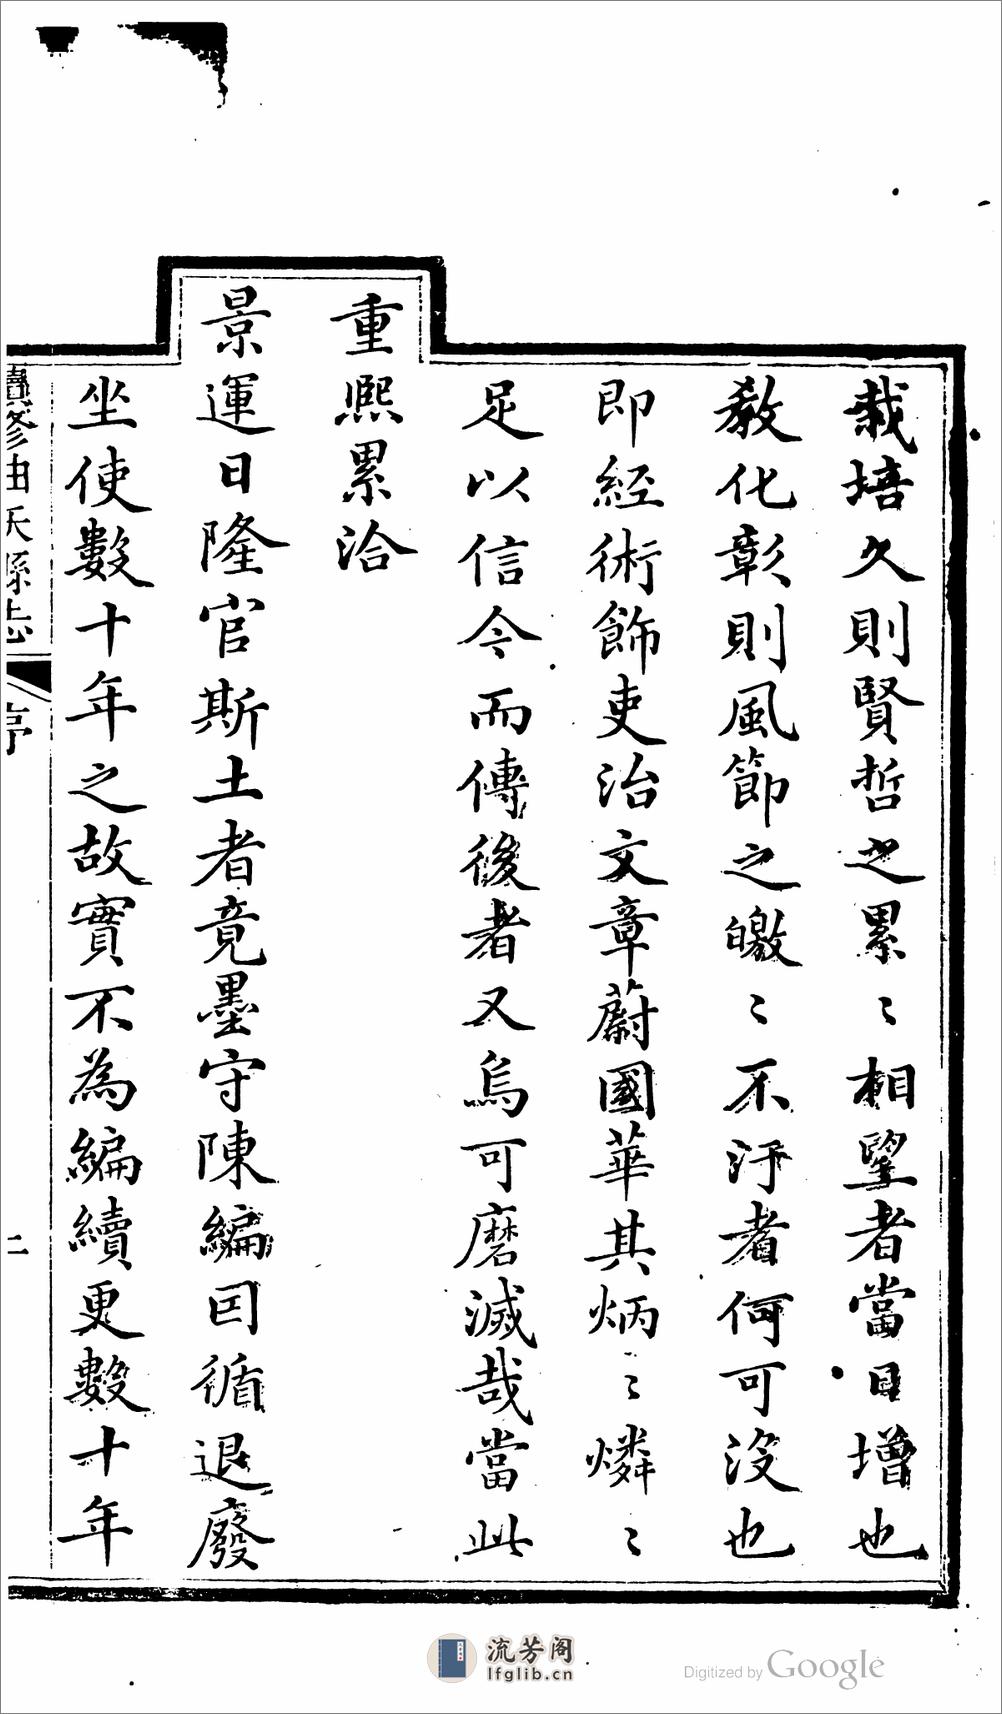 栽培久則賢哲之累〻相望者當日增也
教化彰則風節之皦〻不汙者何可没也
即經術飾吏治文章蔚國華其炳〻燐〻
足以信今而傳後者又烏可磨滅哉當此
重熙累洽
景運日隆官斯土者竟墨守陳編因循退廢
坐使數十年之故實不為編續更數十年
續修曲沃縣志
序
二
流芳阁
lfglib.cn
Digitized by Google